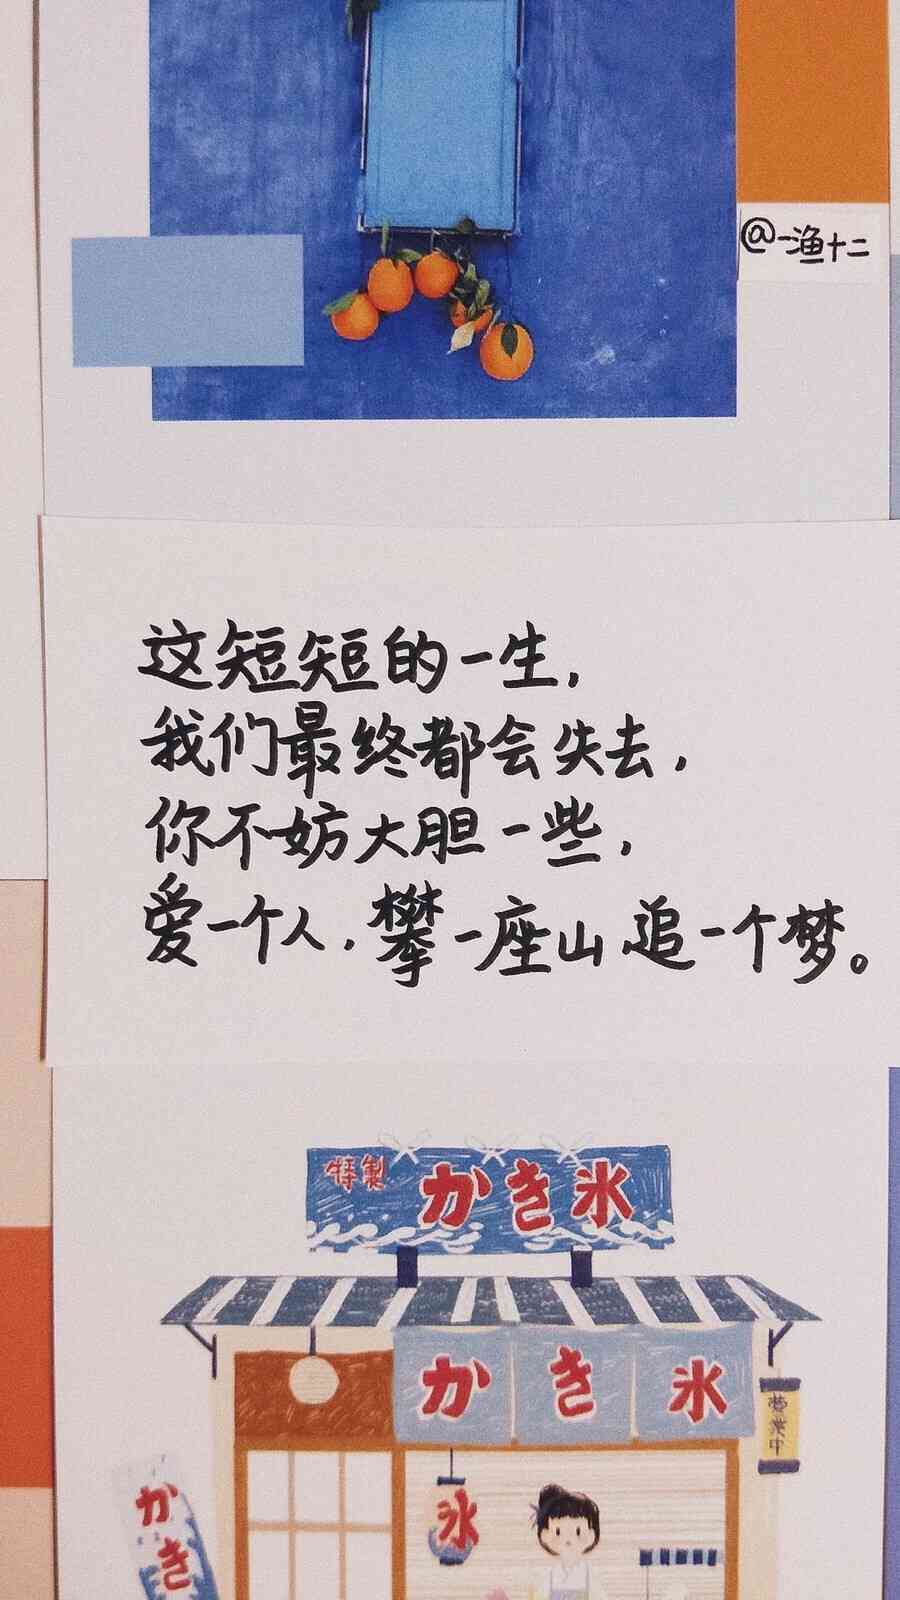 @一渔十二
这短短的一生，
我们最终都会失去，
你不妨大胆一些，
爱一个人，攀一座山追一个梦。
特製 かき氷
かき氷
営業中
氷
かき